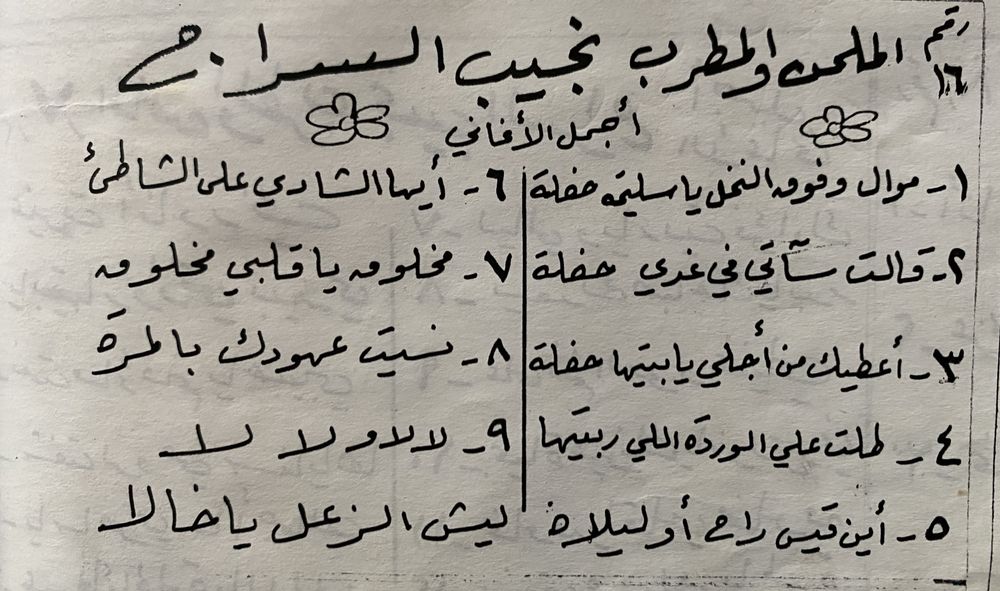 رقم ١٦
الملحن والمطرب نجيب السراج
أجمل الأغاني
١- موال وفوق النخل يا سليمة حفلة
٢- قالت سآتي في غدي حفلة
٣- أعطيك من أجلي يابيتها حفلة
٤- طلت علي الوردة اللي ربيتها
٥- أين قيس راح أو ليلاه
٦- أيها الشادي على الشاطئ
٧- مخلوق يا قلبي مخلوق
٨- نسيت عهودك بالمرة
٩- لالا ولا لا
ليش الزعل يا خالا